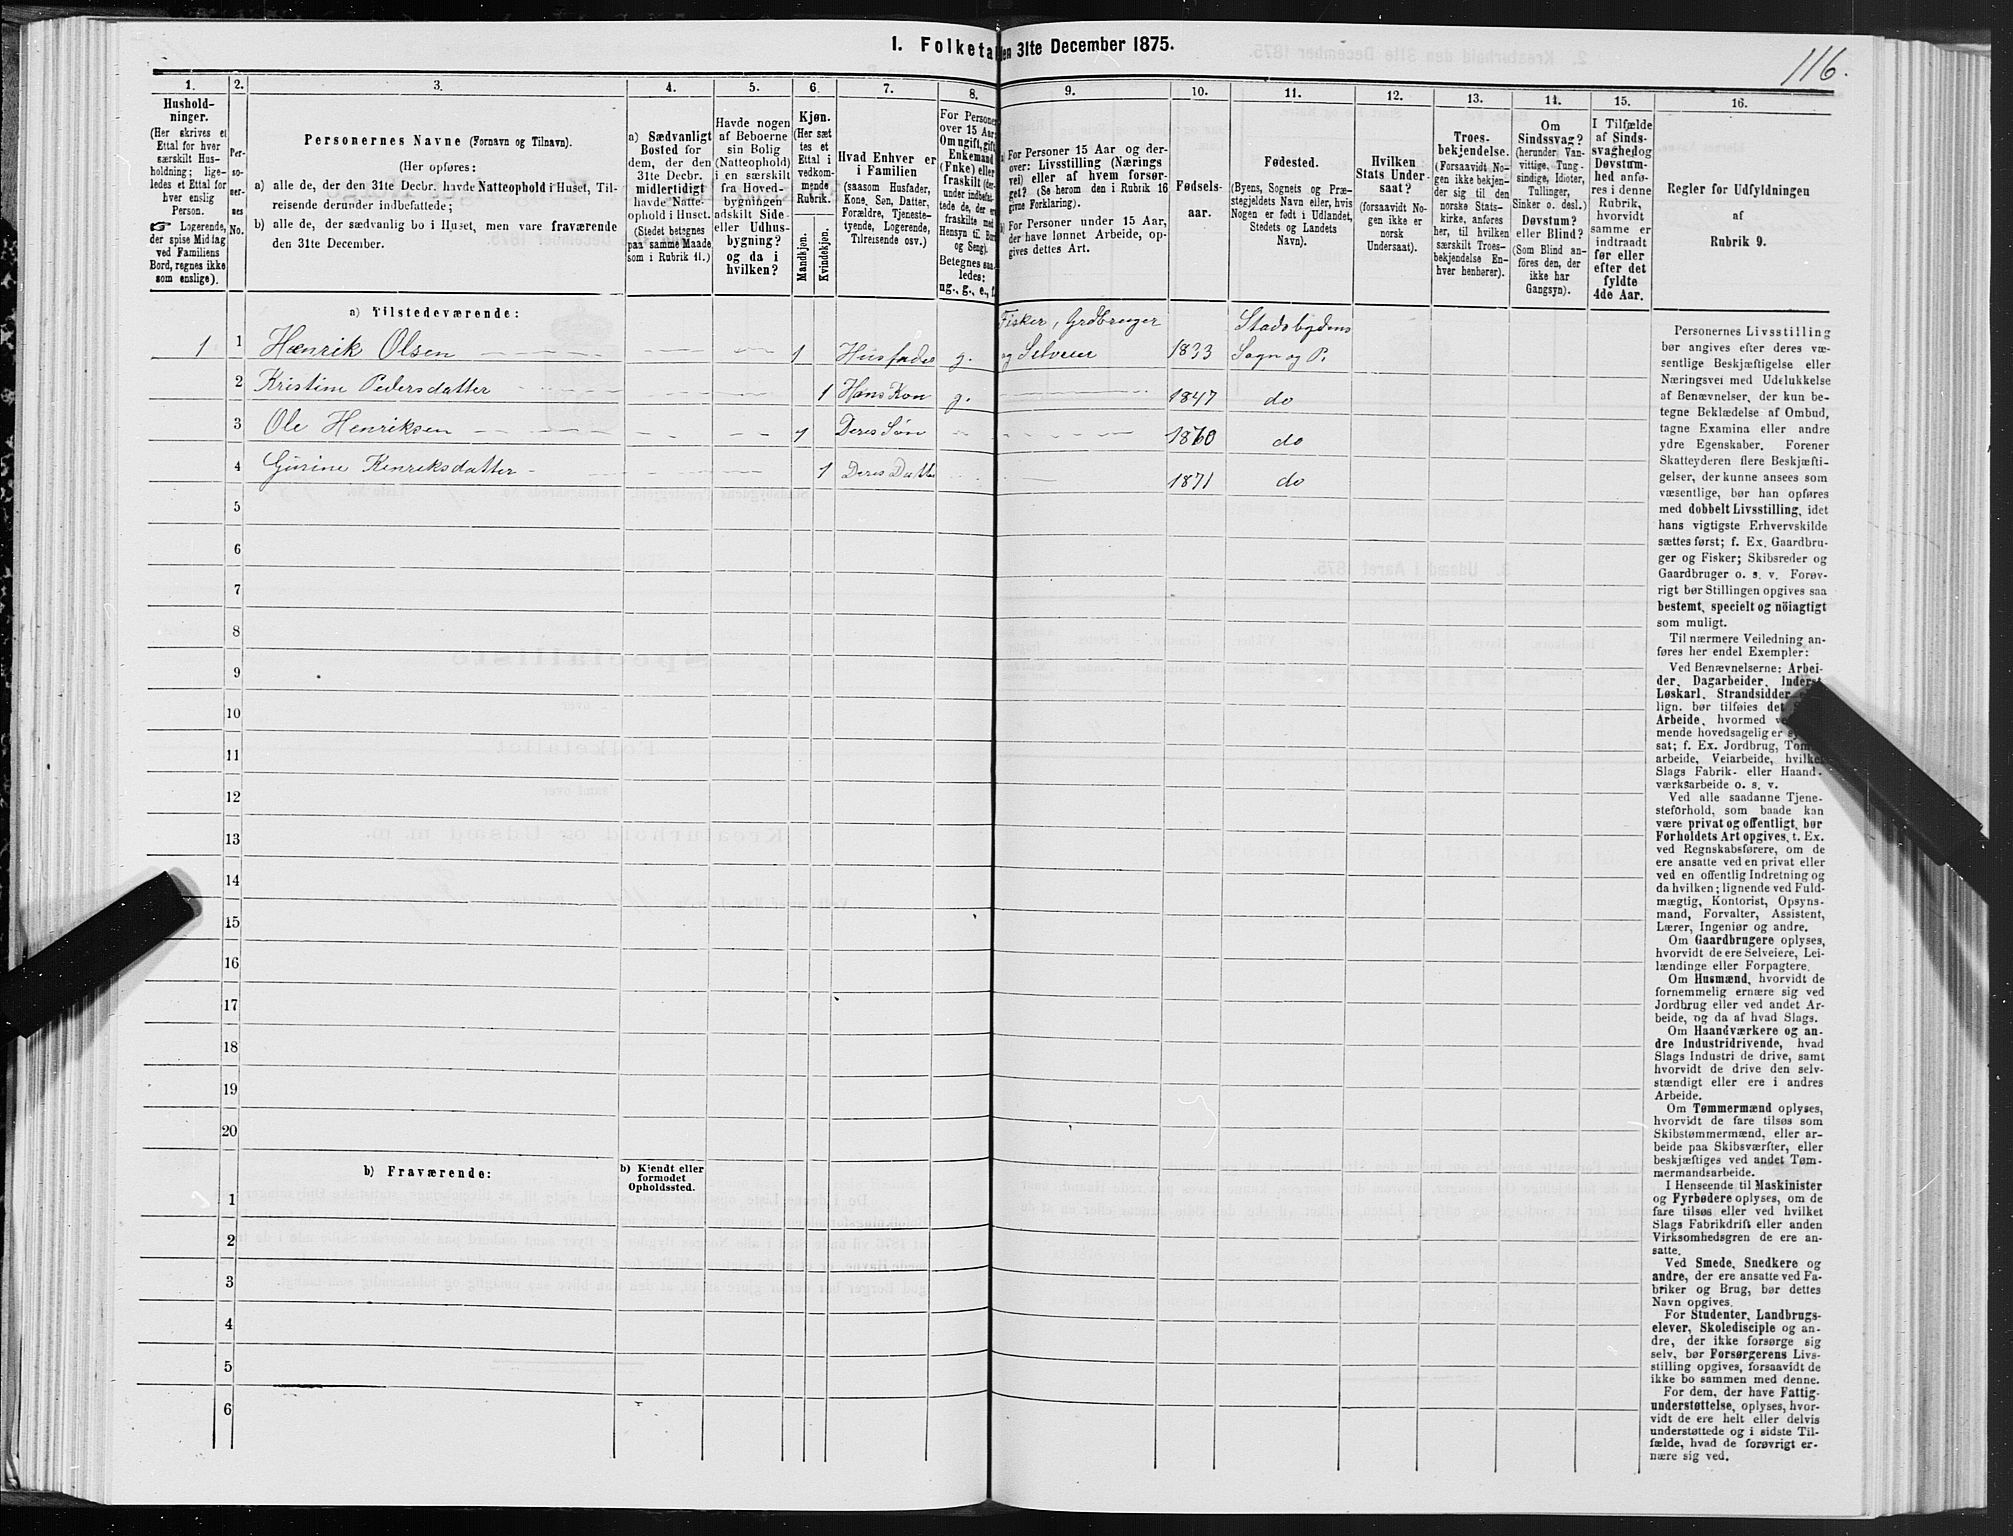 1. Folketal den 31te December 1875.
116.
1. 2. 3. 4. 5. 6. 7. 8. 9. 10. 11. 12. 13. 14. 15. 16.
Hushold-
ninger.
(Her skrives et
Ettal for hver
særskilt Hus-
holdning; lige-
ledes et Ettal for
hver enslig
Person.
☞ Logerende,
der spise Middag
ved Familiens
Bord, regnes ikke
som enslige).
Per-
so-
ner-
nes
No.
Personernes Navne (Fornavn og Tilnavn).
(Her opføres:
a) alle de, der den 31te Decbr. havde Natteophold i Huset, Til-
reisende derunder indbefattede;
b) alle de, der sædvanlig bo i Huset, men vare fraværende
den 31te December.
a) Sædvanligt
Bosted for
dem, der den
31te Decbr.
midlertidigt
havde Natte-
ophold i Huset.
(Stedet betegnes
paa samme Maade
som i Rubrik 11.)
Havde nogen
af Beboerne
sin Bolig
(Natteophold)
i en særskilt
fra Hoved-
bygningen
adskilt Side-
eller Udhus-
bygning?
og da i
hvilken?
Kjøn.
(Her sæt
tes et
Ettal i
vedkom-
mende
Rubrik.
Mandkjøn.
Kvindekjøn.
Hvad Enhver er
i Familien
(saasom Husfader,
Kone, Søn, Datter,
Forældre, Tjeneste-
tyende, Logerende,
Tilreisende osv.)
For Personer
over 15 Aar:
Om ugift, gift,
Enkemand
(Enke) eller
fraskilt (der-
under indbefat-
tede de, der er
fraskilte med
Hensyn til Bord
og Seng).
Betegnes saa-
ledes:
ug., g., e., f.
a) For Personer 15 Aar og der-
over: Livsstilling (Nærings
vei) eller af hvem forsør-
get? (Se herom den i Rubrik 16
givne Forklaring).
b) For Personer under 15 Aar,
der have lønnet Arbeide, op-
gives dettes Art.
Fødsels-
aar.
Fødested.
(Byens, Sognets og Præ-
stegjeldets Navn eller, hvis
Nogen er født i Udlandet,
Stedets og Landets
Navn).
Hvilken
Stats Under-
saat?
(forsaavidt No-
gen ikke er
norsk
Undersaat).
Troes-
bekjendelse.
(Forsaavidt No-
gen ikke bekjen-
der sig til den
norske Stats-
kirke, anføres
her, til hvilken
særskilt Troes-
bekjendelse En-
hver henhører).
Om
Sindssvag?
(herunder Van-
vittige, Tung-
sindige, Idioter,
Tullinger,
Sinker o. desl.)
Døvstum?
eller Blind?
(Som Blind an-
føres den, der
ikke har
Gangsyn).
I Tilfælde
af Sinds-
svaghed og
Døvstum-
hed anfø-
res i denne
Rubrik,
hvorvidt
samme er
indtraadt
før eller
efter det
fyldte
4de Aar.
Regler for Udfyldningen
af
Rubrik 9.
a) Tilstedeværende:
1 1 Henrik Olsen 1 Husfader g. Fisker, Grdbruger og Selveier 1833 Stadsbydens Sogn og P.
2 Kristine Pedersdatter 1 Hans Kon g. 1847 do
3 Ole Henriksen 1 Deres Søn 1860 do
4 Gurine Henriksdatter 1 Deres Datter 1871 do
5
6
7
8
9
10
11
12
13
14
15
16
17
18
19
20
b) Fraværende:
b) Kjendt eller
formodet
Opholdssted.
1
2
3
4
5
6
Personernes Livsstilling
bør angives efter deres væ-
sentlige Beskjæftigelse eller
Næringsvei med Udelukkelse
af Benævnelser, der kun be-
tegne Beklædelse af Ombud,
tagne Examina eller andre
ydre Egenskaber. Forener
Skatteyderen flere Beskjæfti-
gelser, der kunne ansees som
væsentlige, bør han opføres
med dobbelt Livsstilling, idet
hans vigtigste Erhvervskilde
sættes først; f. Ex. Gaardbru-
ger og Fisker; Skibsreder og
Gaardbruger o. s. v. Forøv-
rigt bør Stillingen opgives saa
bestemt, specielt og nöiagtigt
som muligt.
Til nærmere Veiledning an-
føres her endel Exempler:
Ved Benævnelserne: Arbei-
der, Dagarbeider, Inderst,
Løskarl, Strandsidder
lign. bør tilføies det
Arbeide, hvormed
mende hovedsagelig er
sat; f. Ex. Jordbrug, Tøm-
arbeide, Veiarbeide, hvilket
Slags Fabrik- eller Haand-
værksarbeide o. s. v.
Ved alle saadanne Tjene-
steforhold, som baade kan
være privat og offentligt, bør
Forholdets Art opgives, t. Ex.
ved Regnskabsførere, om de
ere ansatte ved en privat eller
ved en offentlig Indretning og
da hvilken; lignende ved Fuld-
mægtig, Kontorist, Opsyns-
mand, Forvalter, Assistent,
Lærer, Ingeniør og andre.
Om Gaardbrugere oplyses,
hvorvidt de ere Selveiere, Lei-
lændinge eller Forpagtere.
Om Husmænd, hvorvidt de
fornemmelig ernære sig ved
Jordbrug eller ved andet Ar-
beide, og da af hvad Slags.
Om Haandværkere og an-
dre Industridrivende, hvad
Slags Industri de drive, samt
hvorvidt de drive den selv-
stændigt eller ere i andres
Arbeide.
Om Tømmermænd oplyses,
hvorvidt de fare tilsøs som
Skibstømmermænd, eller ar-
beide paa Skibsværfter, eller
beskjæftiges ved andet Tøm-
mermandsarbeide.
I Henseende til Maskinister
og Fyrbødere oplyses, om de
fare tilsøs eller ved hvilket
Slags Fabrikdrift eller anden
Virksomhedsgren de ere an-
satte.
Ved Smede, Snedkere og
andre, der ere ansatte ved Fa-
briker og Brug, bør dettes
Navn opgives.
For Studenter, Landbrugs-
elever, Skoledisciple og an-
dre, der ikke forsørge sig
selv, bør Forsørgerens Livs-
stilling opgives, forsaavidt de
ikke bo sammen med denne.
For dem, der have Fattig-
understøttelse, oplyses, hvor-
vidt de ere helt eller delvis
understøttede og i sidste Til-
fælde, hvad de forøvrigt er-
nære sig ved.